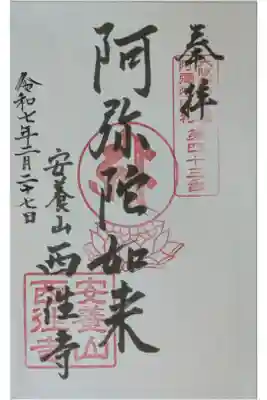 奉拝
第四十三番
阿弥陀如来
安養山 西往寺
令和七年二月二十七日
安養山
西往寺